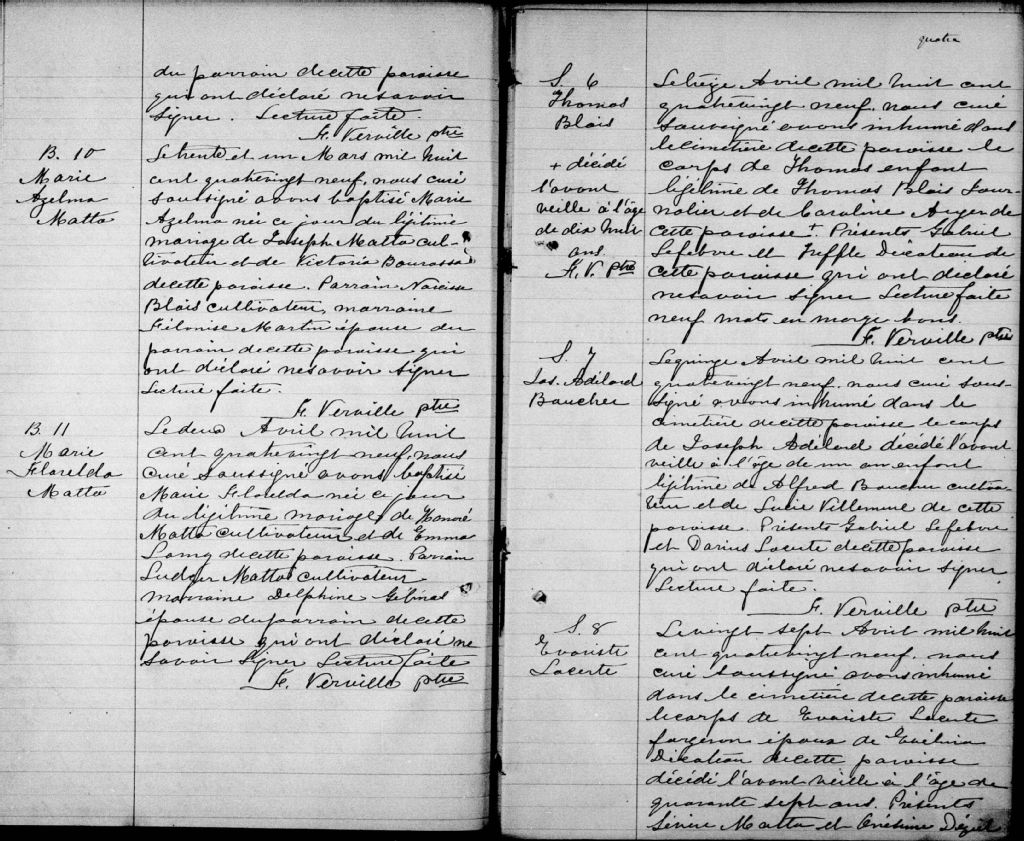 du parrain de cette paroisse
qui ont déclaré ne savoir
signer. Lecture faite.
F. Verville ptre
B. 10
Marie
Azelma
Matta
Le trente et un Mars mil huit
cent quatrevingt neuf, nous curé
soussigné avons baptisé Marie
Azelma née ce jour du légitime
mariage de Joseph Matta cul-
tivateur et de Victoria Bourassa
de cette paroisse. Parrain Narcisse
Blais cultivateur, marraine
Filonise Martin épouse du
parrain de cette paroisse qui
ont déclaré ne savoir signer
Lecture faite.
F. Verville ptre
B. 11
Marie
Florelda
Matta
Le deux Avril mil huit
cent quatrevingt neuf, nous
curé soussigné avons baptisé
Marie Florelda née ce jour
du légitime mariage de Honoré
Matta cultivateur et de Emma
Lamy de cette paroisse. Parrain
Ludger Matta cultivateur
marraine Delphine Gélinas
épouse du parrain de cette
paroisse qui ont déclaré ne
savoir signer Lecture faite
F. Verville ptre
quatre
S. 6
Thomas
Blais
+ décédé
l'avant
veille à l'âge
de dix huit
ans.
F. V. Ptre
Le treize Avril mil huit cent
quatrevingt neuf, nous curé
soussigné avons inhumé dans
le cimetière de cette paroisse le
corps de Thomas enfant
légitime de Thomas Blais Jour-
nalier et de Caroline Auger de
cette paroisse +. Présents Gabriel
Lefebvre et Treffle Dicateau de
cette paroisse qui ont déclaré
ne savoir signer Lecture faite
neuf mots en marge bons.
F. Verville ptre
S. 7
Jos. Adélard
Boucher
Le quinze Avril mil huit cent
quatrevingt neuf, nous curé sous-
signé avons inhumé dans le
cimetière de cette paroisse le corps
de Joseph Adélard décédé l'avant
veille à l'âge de un an enfant
légitime de Alfred Boucher cultiva-
teur et de Lucie Villemure de cette
paroisse. Présents Gabriel Lefebvre
et Darius Lacerte de cette paroisse
qui ont déclaré ne savoir signer
Lecture faite.
F. Verville ptre
S. 8
Evariste
Lacerte
Le vingt sept Avril mil huit
cent quatrevingt neuf, nous
curé soussigné avons inhumé
dans le cimetière de cette paroisse
le corps de Evariste Lacerte
forgeron époux de Evélina
Dicateau de cette paroisse
décédé l'avant veille à l'âge de
quarante sept ans. Présents
Sévère Matta et Onésime